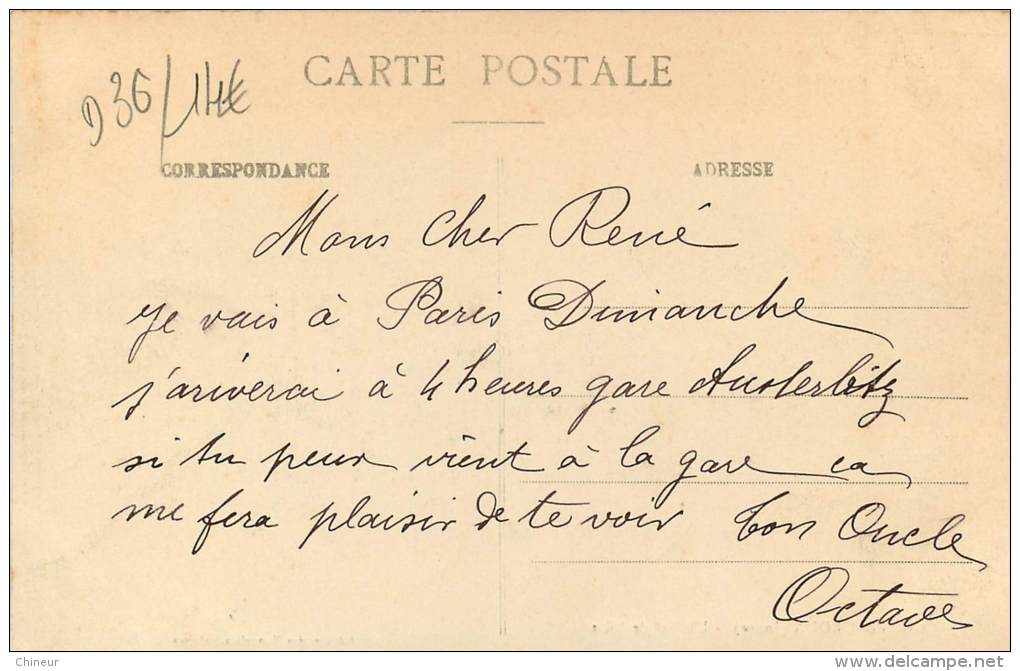 D36/14€
CARTE POSTALE
CORRESPONDANCE
ADRESSE
Mons cher René
je vais à Paris Dimanche
j'ariverai à 4 heures gare Austerlitz
si tu peux vient à la gare ca
me fera plaisir de te voir ton Oncle
Octave
Chineur
www.delcampe.net